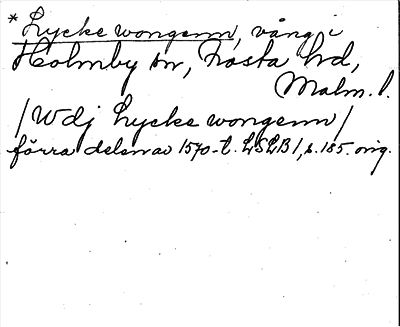 * Lycke wongenn, vång i
Holmby sn, Frosta hd,
Malm. l.
/Wdj Lycke wongenn/
förra delen av 1570-t. LSLB1, s. 185. orig.